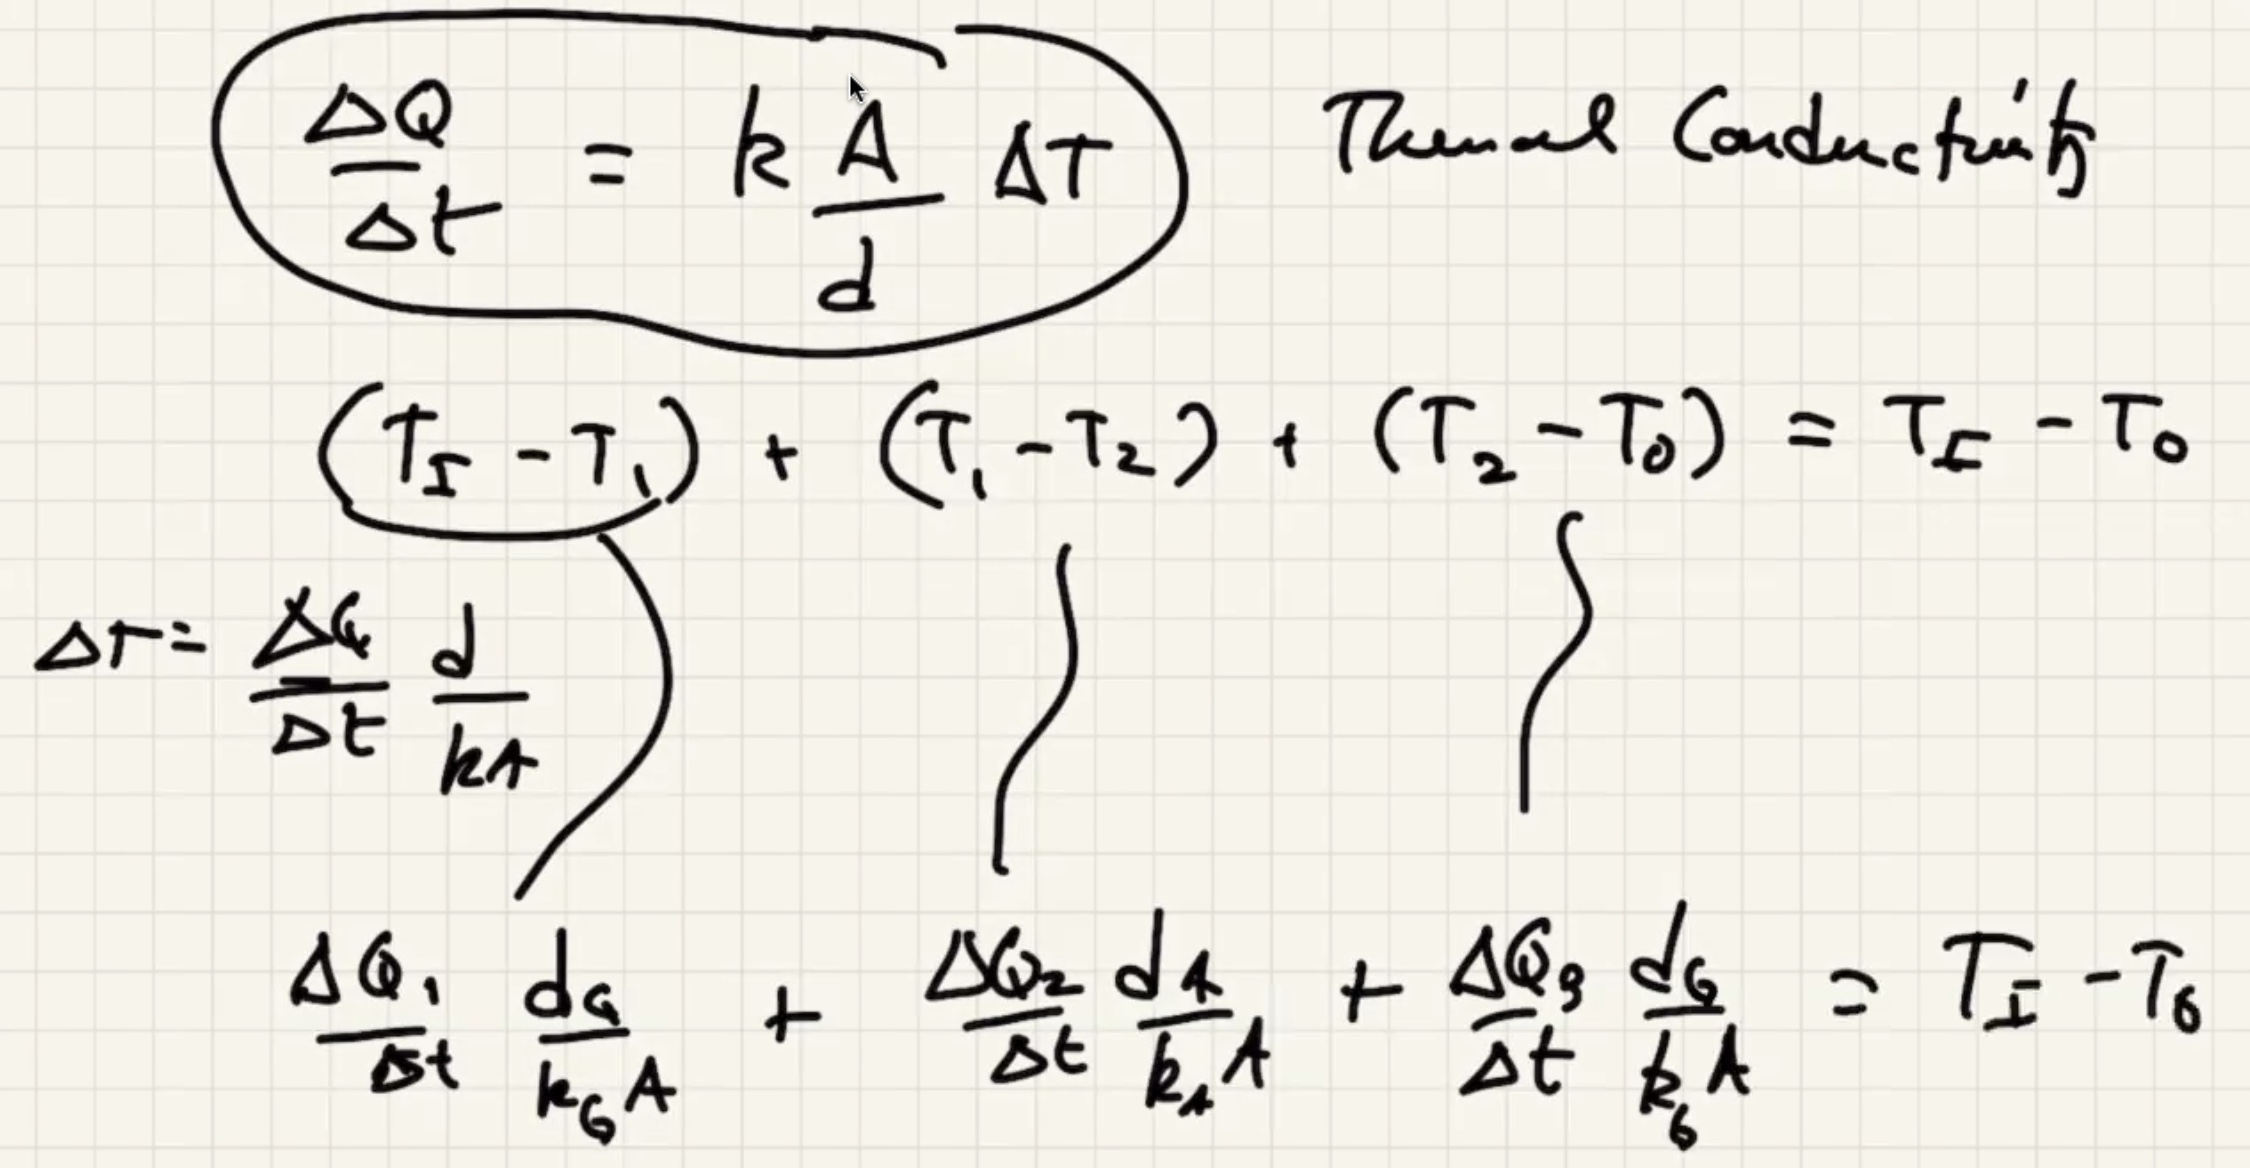 ΔQ/Δt = k A/d ΔT Thermal Conductivity
(T_I - T_1) + (T_1 - T_2) + (T_2 - T_0) = T_I - T_0
ΔT = ΔQ/Δt d/kA
ΔQ_1/Δt d_G/k_G A + ΔQ_2/Δt d_A/k_A A + ΔQ_3/Δt d_G/k_G A = T_I - T_0